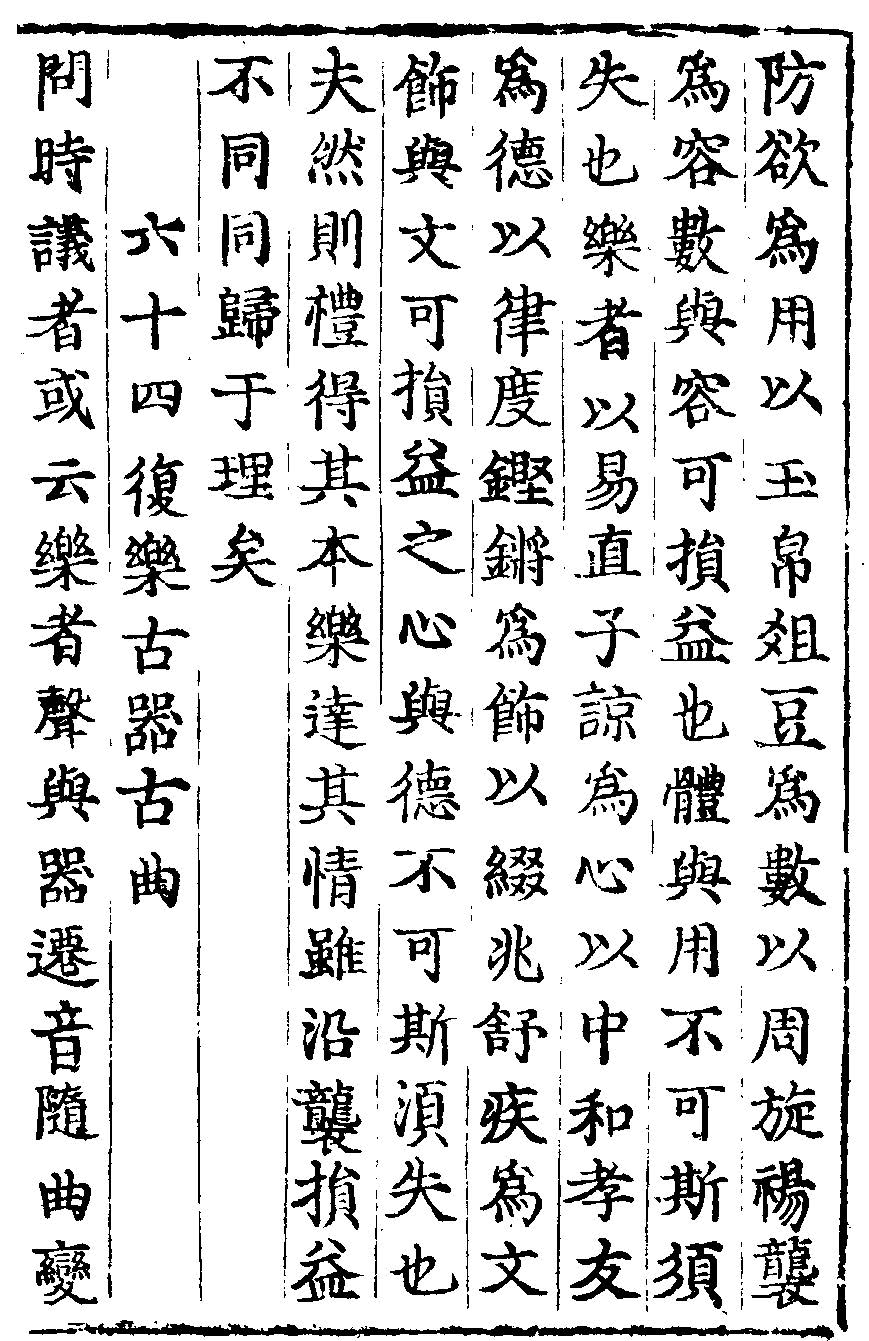 防欲爲用以玉帛爼豆爲數以周旋裼襲
爲容數與容可損益也體與用不可斯須
失也樂者以易直子諒爲心以中和孝友
爲德以律度鏗鏘爲飾以綴兆舒疾爲文
飾與文可損益之心與德不可斯須失也
夫然則禮得其本樂達其情雖沿襲損益
不同同歸于理矣
六十四復樂古器古曲
問時議者或云樂者聲與器遷音隨曲變